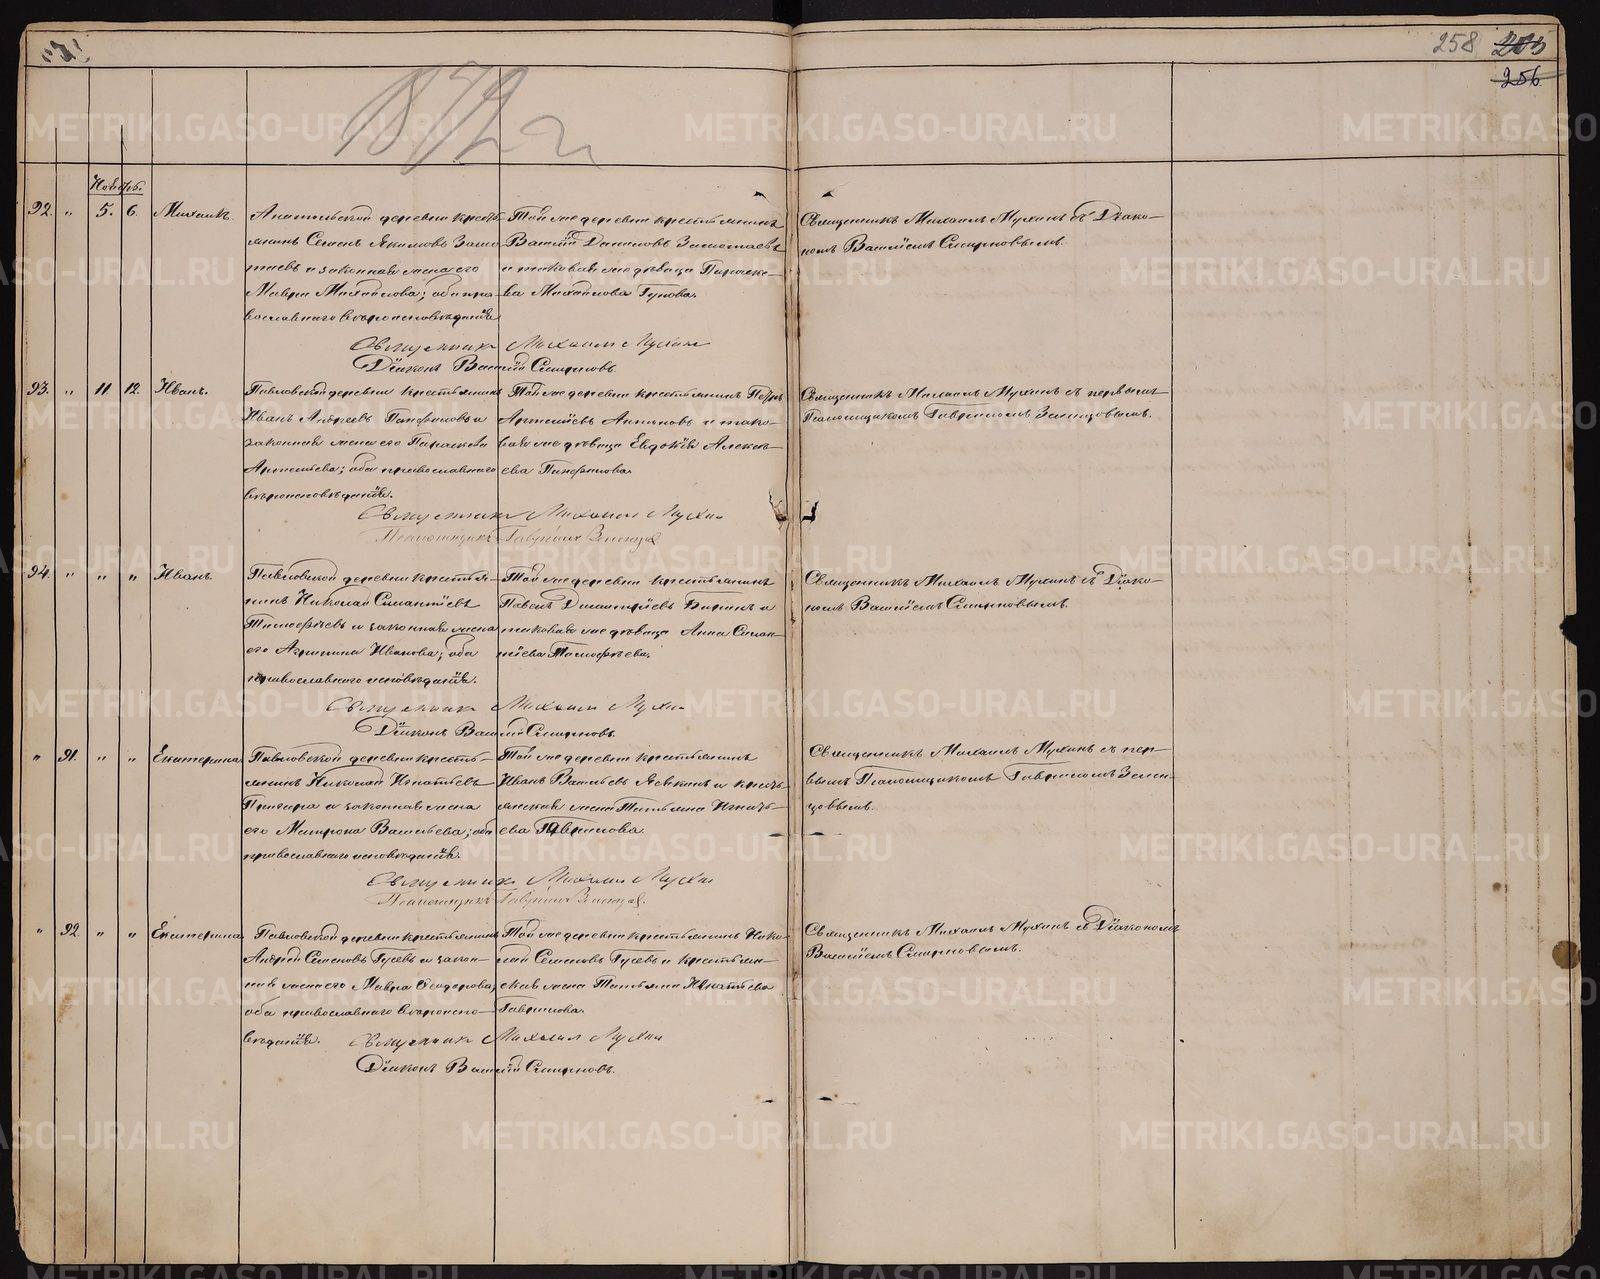 258 203
256
1872 г.
Ноябрь.
92. " 5. 6. Михаилъ.
Анатольской деревни кресть-
янинъ Семенъ Якимовъ Замо-
таевъ и законная жена его
Мавра Михайлова; оба пра-
вославнаго вѣроисповѣданія
Той же деревни крестьянинъ
Василій Даниловъ Замотаевъ
и таковая же дѣвица Параске-
ва Михайлова Гунова.
Священникъ Михаилъ Мухинъ съ Діако-
номъ Василіемъ Смирновымъ.
Священникъ Михаилъ Мухинъ
Діаконъ Василій Смирновъ.
93. " 11. 12. Иванъ.
Павловской деревни крестьянинъ
Иванъ Андреевъ Панфиловъ и
законная жена его Параскева
Артемьева; оба православнаго
вѣроисповѣданія.
Той же деревни крестьянинъ Петръ
Артемьевъ и тако-
вая же дѣвица Евдокія Алексѣ-
ева Панфилова.
Священникъ Михаилъ Мухинъ съ первымъ
Псаломщикомъ Гавріиломъ Земляцовымъ.
Священникъ Михаилъ Мухинъ
Псаломщикъ Гавріилъ
94. " " " Иванъ.
Павловской деревни крестья-
нинъ Николай Силантіевъ
Тимофѣевъ и законная жена
его Агрипина Иванова; оба
православнаго исповѣданія.
Той же деревни крестьянинъ
Павелъ Дементіевъ и
таковая же дѣвица Анна Силан-
тіева Тимофѣева.
Священникъ Михаилъ Мухинъ съ Діако-
номъ Василіемъ Смирновымъ.
Священникъ Михаилъ Мухинъ
Діаконъ Василій Смирновъ.
" 91. " " Екатерина.
Павловской деревни кресть-
янинъ Николай Игнатьевъ
и законная жена
его Матрона Васильева; оба
православнаго исповѣданія.
Той же деревни крестьянинъ
Иванъ Васильевъ и кресть-
янская жена Татьяна Игнать-
ева Гаврилова.
Священникъ Михаилъ Мухинъ съ пер-
вымъ Псаломщикомъ Гавріиломъ
Священникъ Михаилъ Мухинъ
Псаломщикъ Гавріилъ
" 92. " " Екатерина.
Павловской деревни крестьянинъ
Андрей Семеновъ Гусевъ и закон-
ная жена его Мавра Ѳеодорова;
оба православнаго вѣроиспо-
вѣданія.
Той же деревни крестьянинъ Нико-
лай Семеновъ Гусевъ и крестьян-
ская жена Татьяна Игнатьева
Гаврилова.
Священникъ Михаилъ Мухинъ съ Діакономъ
Василіемъ Смирновымъ.
Священникъ Михаилъ Мухинъ
Діаконъ Василій Смирновъ.
METRIKI.GASO-URAL.RU